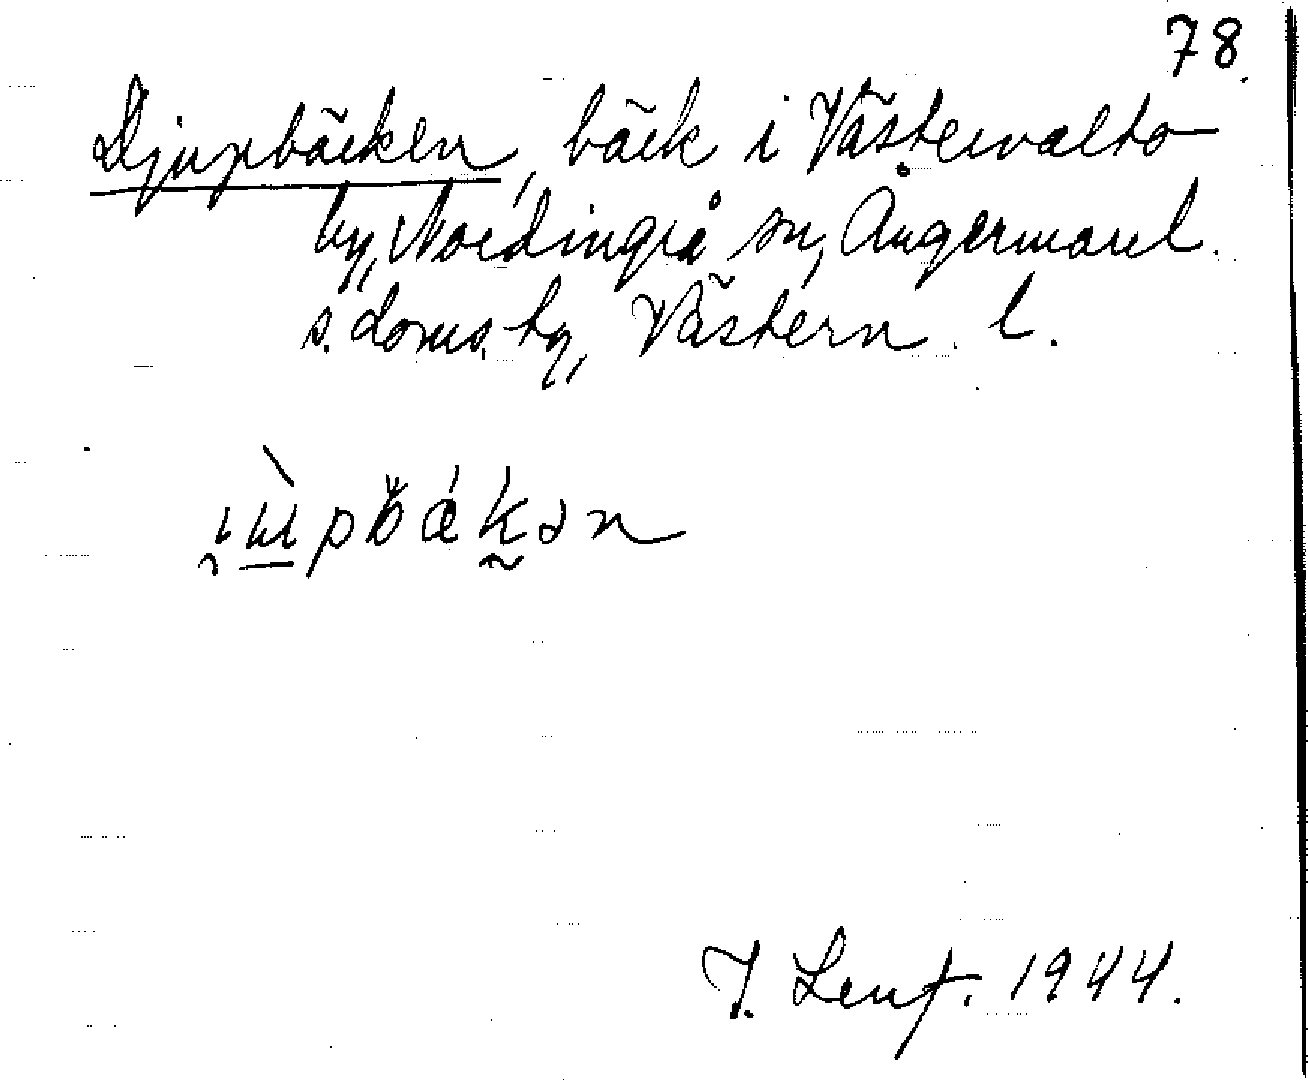 78.
Djupbäcken, bäck i Västervalto
by, Nordingrå sn, Ångermanl.
s. doms. tg, Västern. l.
J. Lenf. 1944.